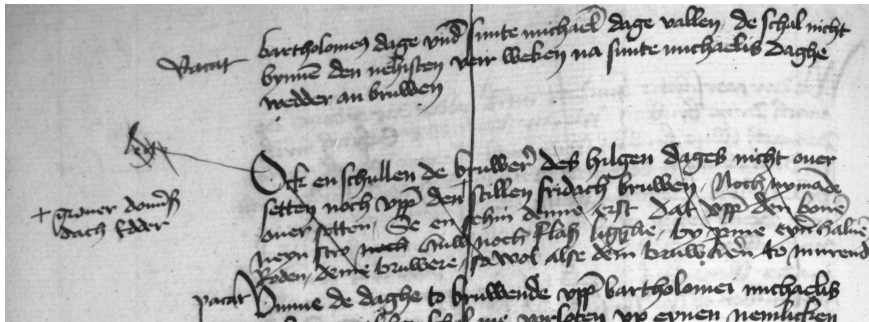 bartholomeus dage vnd sunte michael dage vallen, de schal nicht
Vacat
bynnen den nehisten veir weken na sunte michaelis daghe
wedder an bruwen
Ock en schullen de bruwer des hilgen dages nicht ouer
setten noch vpp den stillen fridach bruwen, Noch nymande
+ groner donrs
dach edder
ouer setten, Se en sehin denne erst dat vpp den bonen
neyn stro noch ruw noch flass ligghe, by pine eyner haluen
Roden, deme bruwere, so wol alse dem bruwheren to murend
vacat Vmme de daghe to bruwende vpp bartholomei michaelis
schal me vorloten vp eynen nemlicken